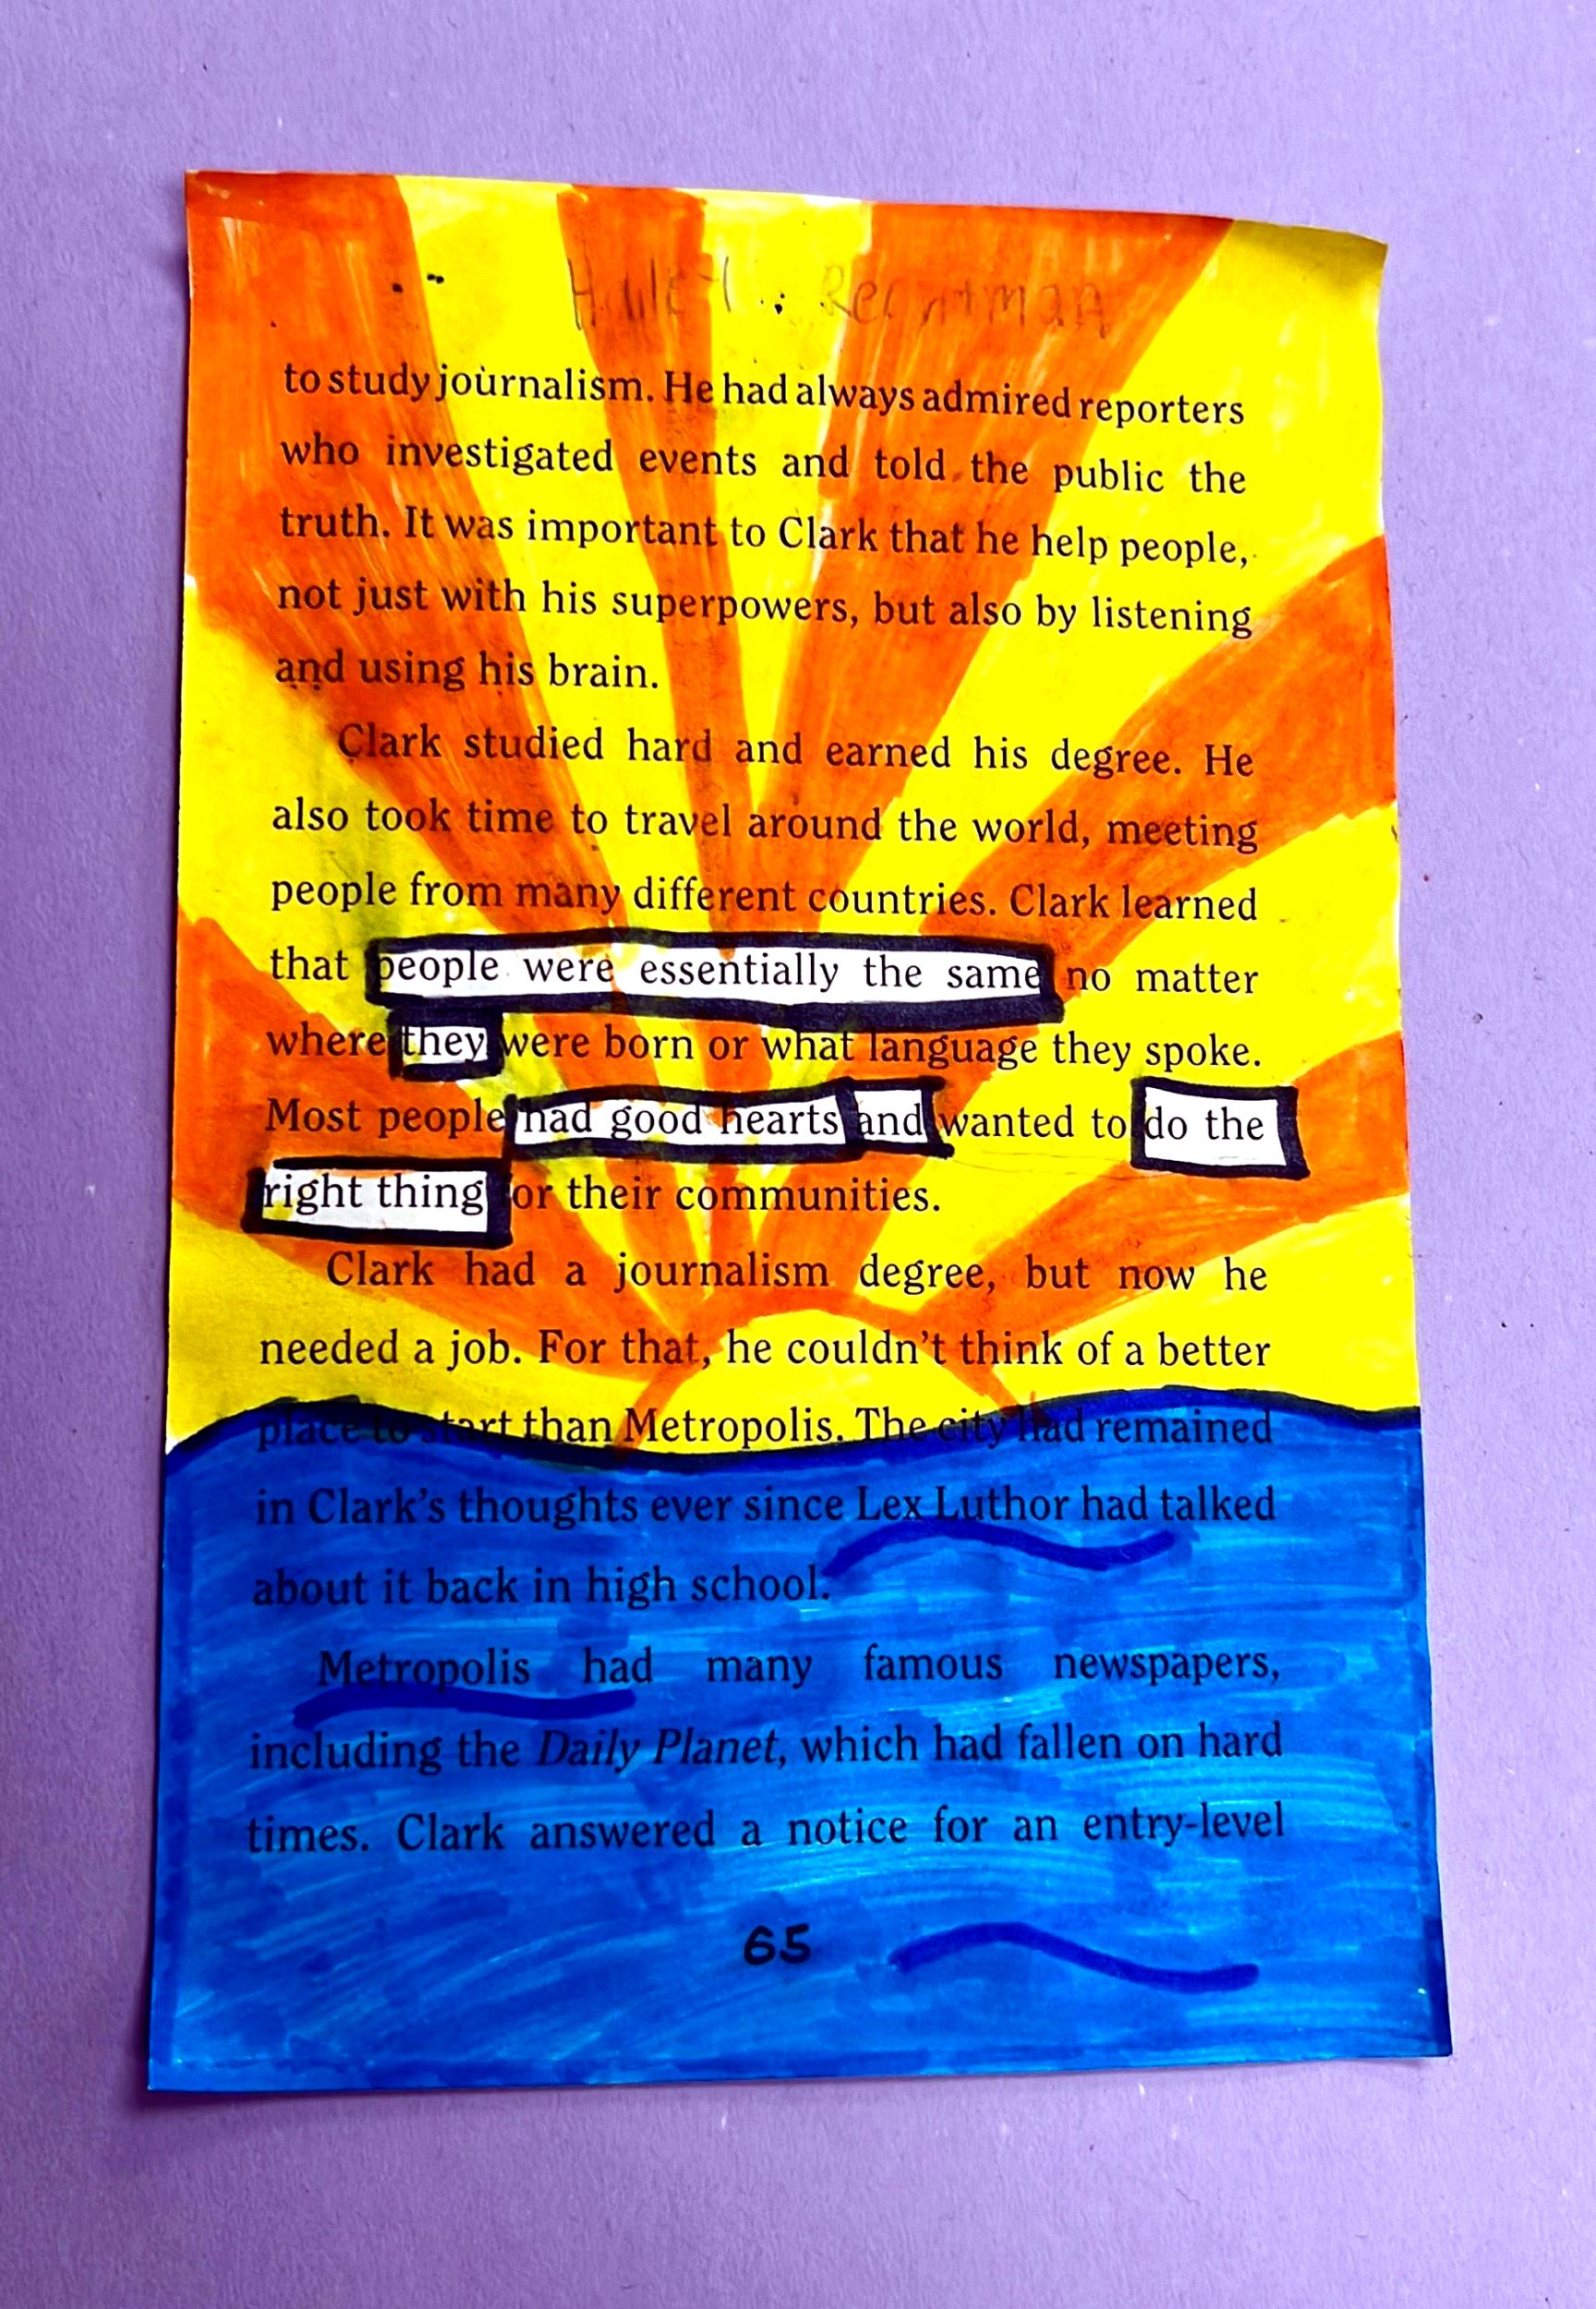 to study journalism. He had always admired reporters
who investigated events and told the public the
truth. It was important to Clark that he help people,
not just with his superpowers, but also by listening
and using his brain.
Clark studied hard and earned his degree. He
also took time to travel around the world, meeting
people from many different countries. Clark learned
that people were essentially the same no matter
where they were born or what language they spoke.
Most people had good hearts and wanted to do the
right thing for their communities.
Clark had a journalism degree, but now he
needed a job. For that, he couldn't think of a better
place to start than Metropolis. The city had remained
in Clark's thoughts ever since Lex Luthor had talked
about it back in high school.
Metropolis had many famous newspapers,
including the Daily Planet, which had fallen on hard
times. Clark answered a notice for an entry-level
65